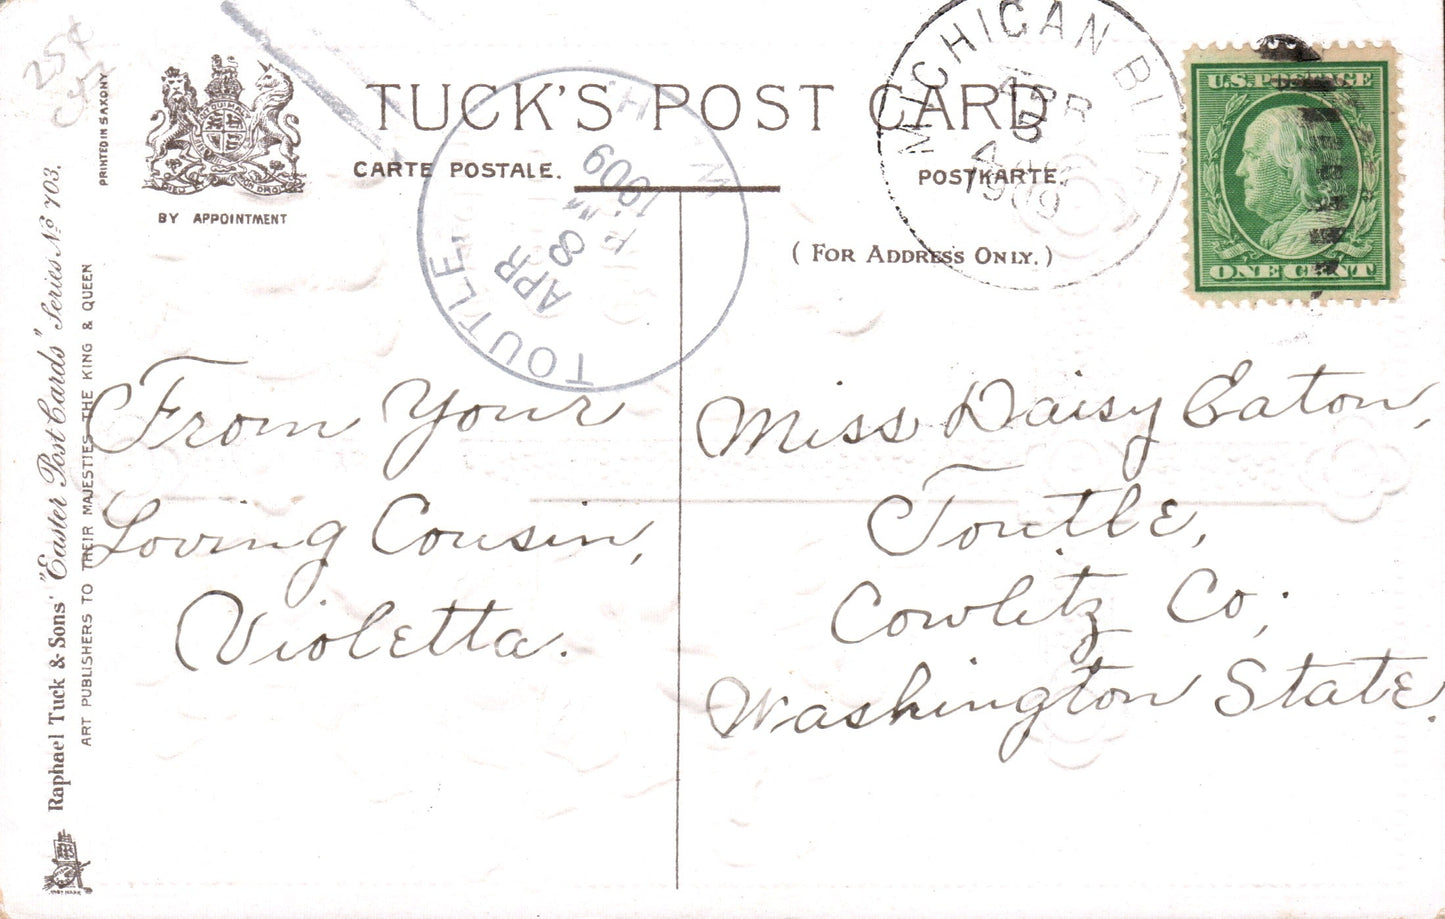 25¢
TUCK'S POST CARD
CARTE POSTALE.
POSTKARTE.
(FOR ADDRESS ONLY.)
BY APPOINTMENT
PRINTED IN SAXONY
Raphael Tuck & Sons' "Easter Post Cards" Series No 703.
ART PUBLISHERS TO THEIR MAJESTIES THE KING & QUEEN
TOUTLE,
APR
8
1909
MICHIGAN BLUFF
APR
5
1909
U.S. POSTAGE
ONE CENT
From Your
Loving Cousin,
Violetta.
Miss Daisy Eaton,
Toutle,
Cowlitz Co;
Washington State.